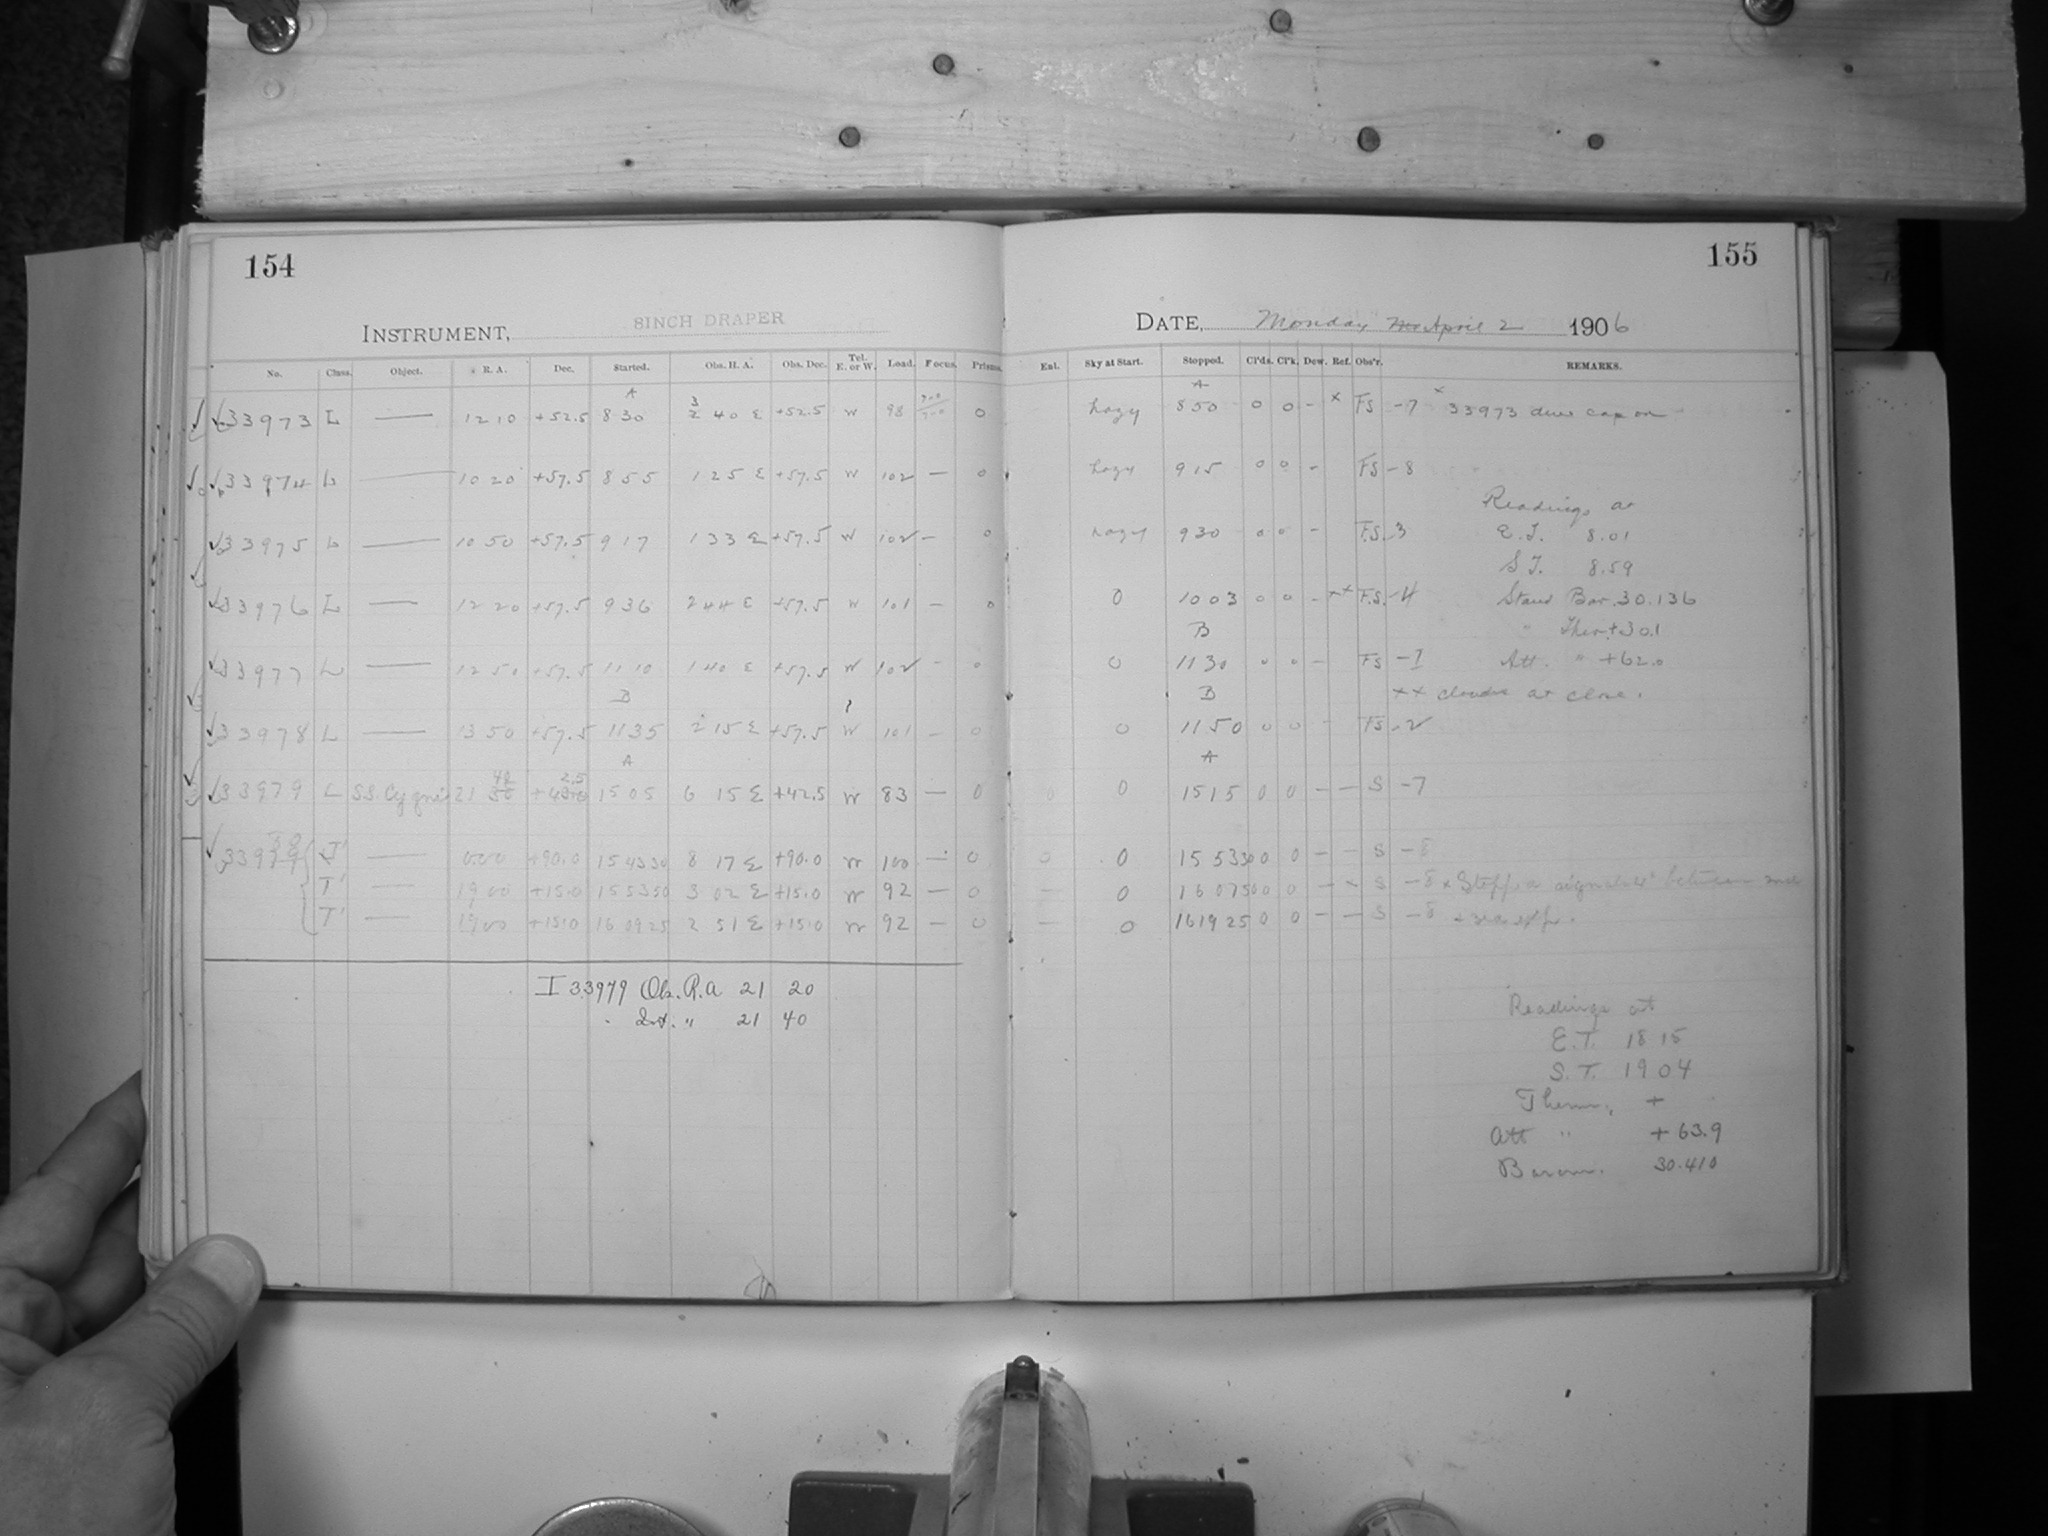 154
155
INSTRUMENT, 8INCH DRAPER
DATE, Monday April 2 1906
No. Class. Object. R. A. Dec. Started. Obs. H. A. Obs. Dec. Tel. E. or W. Load. Focus. Prisms. Enl. Sky at Start. Stopped. Cl'ds. Cl'k. Dew. Ref. Obs'r. REMARKS.
A A
33973 L — 12 10 +52.5 8 30 3 40 E +52.5 W 98 0 hazy 8 50 0 0 - x FS -7 x 33973 dew cap on
33974 L — 10 20 +57.5 8 55 1 25 E +57.5 W 102 — 0 hazy 9 15 0 0 - FS -8
Readings at
33975 L — 10 50 +57.5 9 17 1 33 E +57.5 W 102 — 0 hazy 9 30 0 0 - F.S. -3 E.T. 8.01
S.T. 8.59
33976 L — 12 20 +57.5 9 36 2 44 E +57.5 W 101 — 0 0 10 03 0 0 - xx F.S. -4 Stand Bar. 30.136
B " Ther. +30.1
33977 L — 12 50 +57.5 11 10 1 40 E +57.5 W 102 - 0 0 11 30 0 0 - FS -1 Att. " +62.0
B B xx clouds at close.
33978 L — 13 50 +57.5 11 35 2 15 E +57.5 W 101 - 0 0 11 50 0 0 - FS -2
A A
33979 L S.S. Cygni 21 40 +42.5 15 05 6 15 E +42.5 W 83 — 0 0 0 15 15 0 0 - - S -7
33979 T' — 0 00 +90.0 15 43 30 8 17 E +90.0 W 100 — 0 0 0 15 53 30 0 0 - - S -8
T' — 19 00 +15.0 15 53 50 3 02 E +15.0 W 92 — 0 — 0 16 07 50 0 0 - x S -8 x Stopp. a signal 4' between 2nd
T' — 19 00 +15.0 16 09 25 2 51 E +15.0 W 92 — 0 — 0 16 19 25 0 0 - - S -8 + 3rd exp.
I 33979 Ob. R.A 21 20
" Int. " 21 40
Readings at
E.T. 18 15
S.T. 19 04
Therm. +
Att " + 63.9
Barom. 30.410